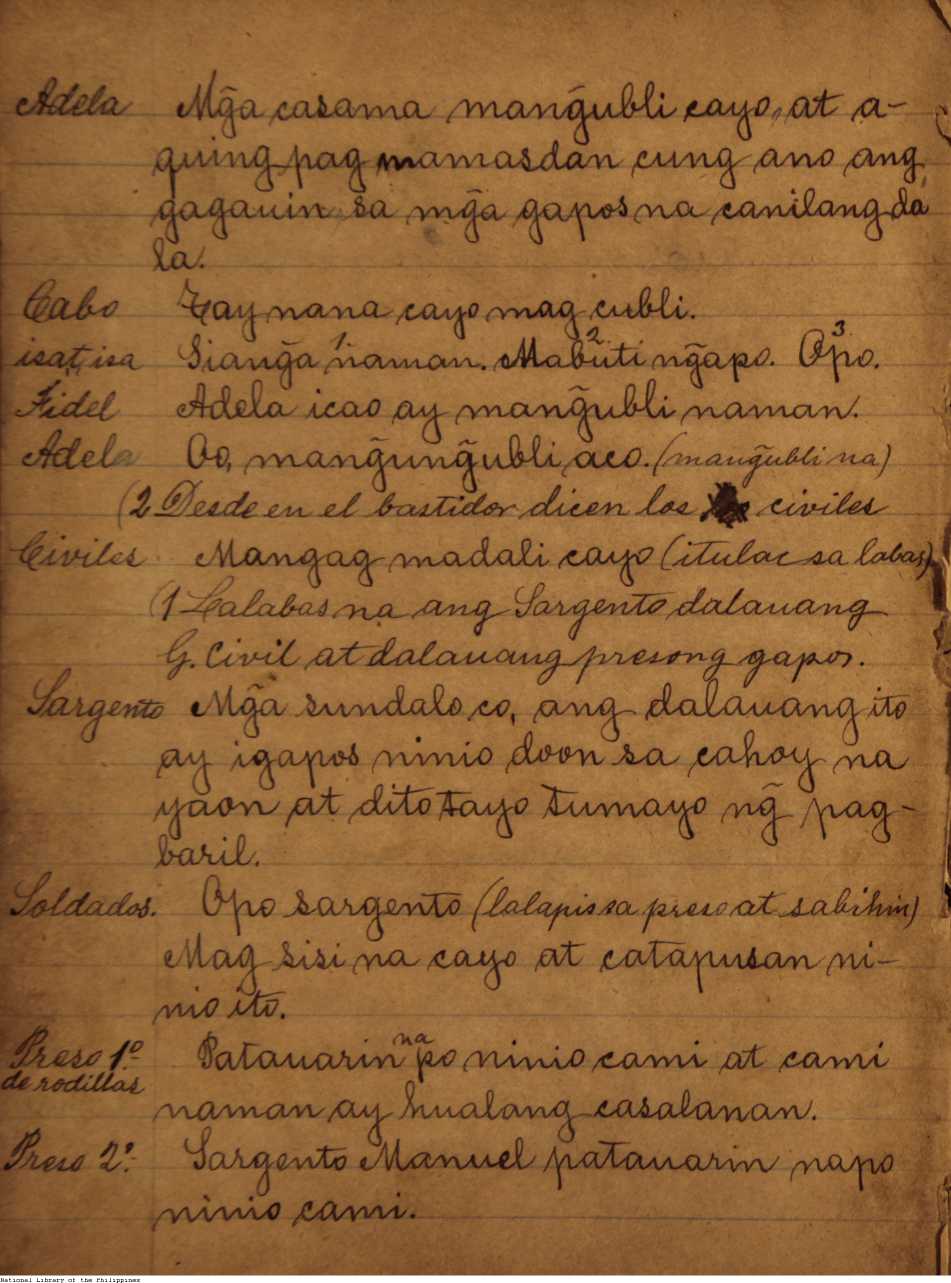 Adela Mg̃a casama mang̃ubli cayo, at a-
quing pag mamasdan cung ano ang
gagauin sa mg̃a gapos na canilang da
la.
Cabo Tay nana cayo mag cubli.
isat, isa Siang̃a 1 naman. Mabuti 2 ng̃apo. Opo. 3
Fidel Adela icao ay mang̃ubli naman.
Adela Oo, mang̃ung̃ubli aco. (mang̃ubli na)
(2 Desde en el bastidor dicen los civiles
Civiles Mangag madali cayo (itulac sa labas)
(1 Lalabas na ang Sargento dalauang
G. Civil at dalauang presong gapos.
Sargento Mg̃a sundalo co, ang dalauang ito
ay igapos ninio doon sa cahoy na
yaon at dito tayo tumayo ng̃ pag-
baril.
Soldados. Opo sargento (lalapis sa preso at sabihin)
Mag sisi na cayo at catapusan ni-
nio ito.
Preso 1º Patauarin na po ninio cami at cami
de rodillas
naman ay hualang casalanan.
Preso 2º Sargento Manuel patauarin napo
ninio cami.
National Library of the Philippines